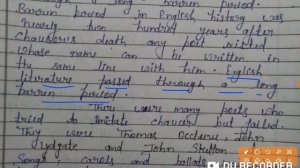 through a long barren period.
Barren period in English history was
nearly two hundred years after
Chaucer's death any poet existed
whose name can be written in
the same line with him. English
literature passed through a long
barren period.
They were many poets who
tried to imitate chaucer but failed.
They were Thomas Occleve, John
Lydgate and John Skelton
Songs, carols and ballads
DU RECORDER